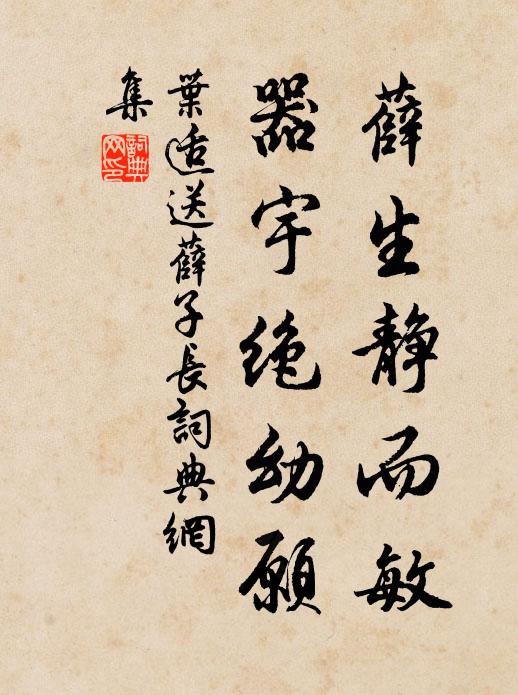 薛生静而敏
器宇绝幼願
葉适送薛子長詞典網
集
詞典
网印